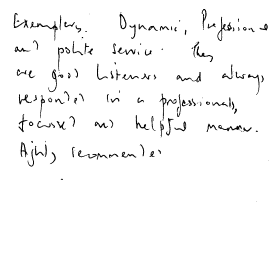 Exemplary. Dynamic, Professional
and polite service. They
are good listeners and always
responded in a professional,
focused and helpful manner.
Highly recommended